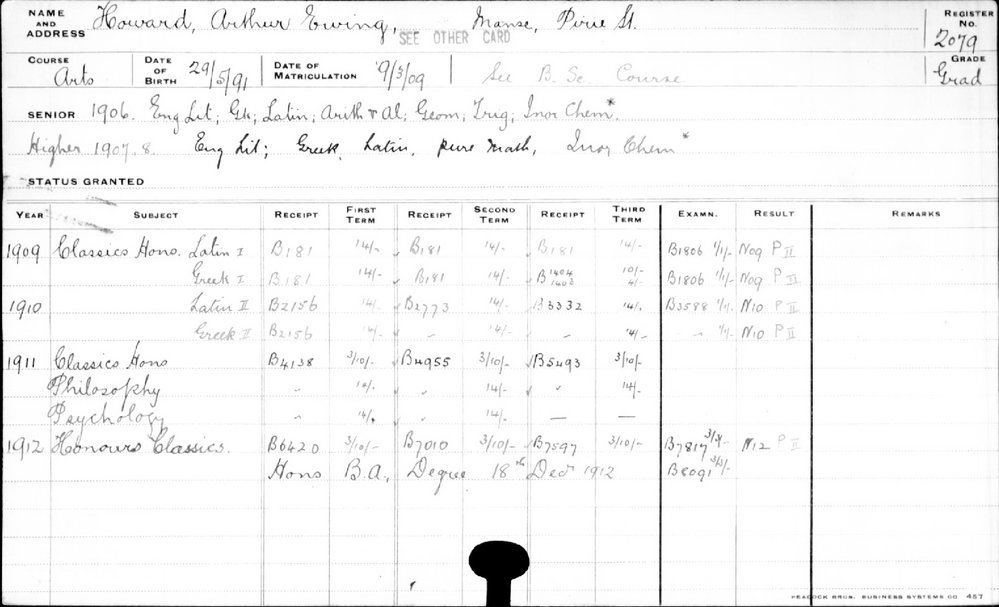 NAME AND ADDRESS Howard, Arthur Ewing, Manse, Pirie St. REGISTER No. 2079
SEE OTHER CARD
COURSE Arts DATE OF BIRTH 29/5/91 DATE OF MATRICULATION 9/3/09 See B. Sc. Course GRADE Grad
SENIOR 1906. Eng Lit; Gk; Latin; Arith & Al; Geom; Trig; Inor Chem*.
Higher 1907.8. Eng Lit; Greek, Latin, pure Math, Inor Chem*
STATUS GRANTED
YEAR SUBJECT RECEIPT FIRST TERM RECEIPT SECOND TERM RECEIPT THIRD TERM EXAMN. RESULT REMARKS
1909 Classics Hons. Latin I B181 14/- B181 14/- B181 14/- B1806 1/1/- No9 P II
Greek I B181 14/- B181 14/- B1404 10/- 4/- B1806 1/1/- No9 P II
1910 Latin II B2156 14/- B2773 14/- B3332 14/- B3588 1/1/- N10 P II
Greek II B2156 14/- " 14/- " 14/- " 1/1/- N10 P II
1911 Classics Hons B4138 3/10/- B4955 3/10/- B5493 3/10/-
Philosophy " " 14/- " 14/-
Psychology " 14/- " 14/- — —
1912 Honours Classics. B6420 3/10/- B7010 3/10/- B7597 3/10/- B7817 3/3/- N12 P II
Hons B.A., Degree 18th Decr 1912 B8091 3/3/-
PEACOCK BROS. BUSINESS SYSTEMS CO 457